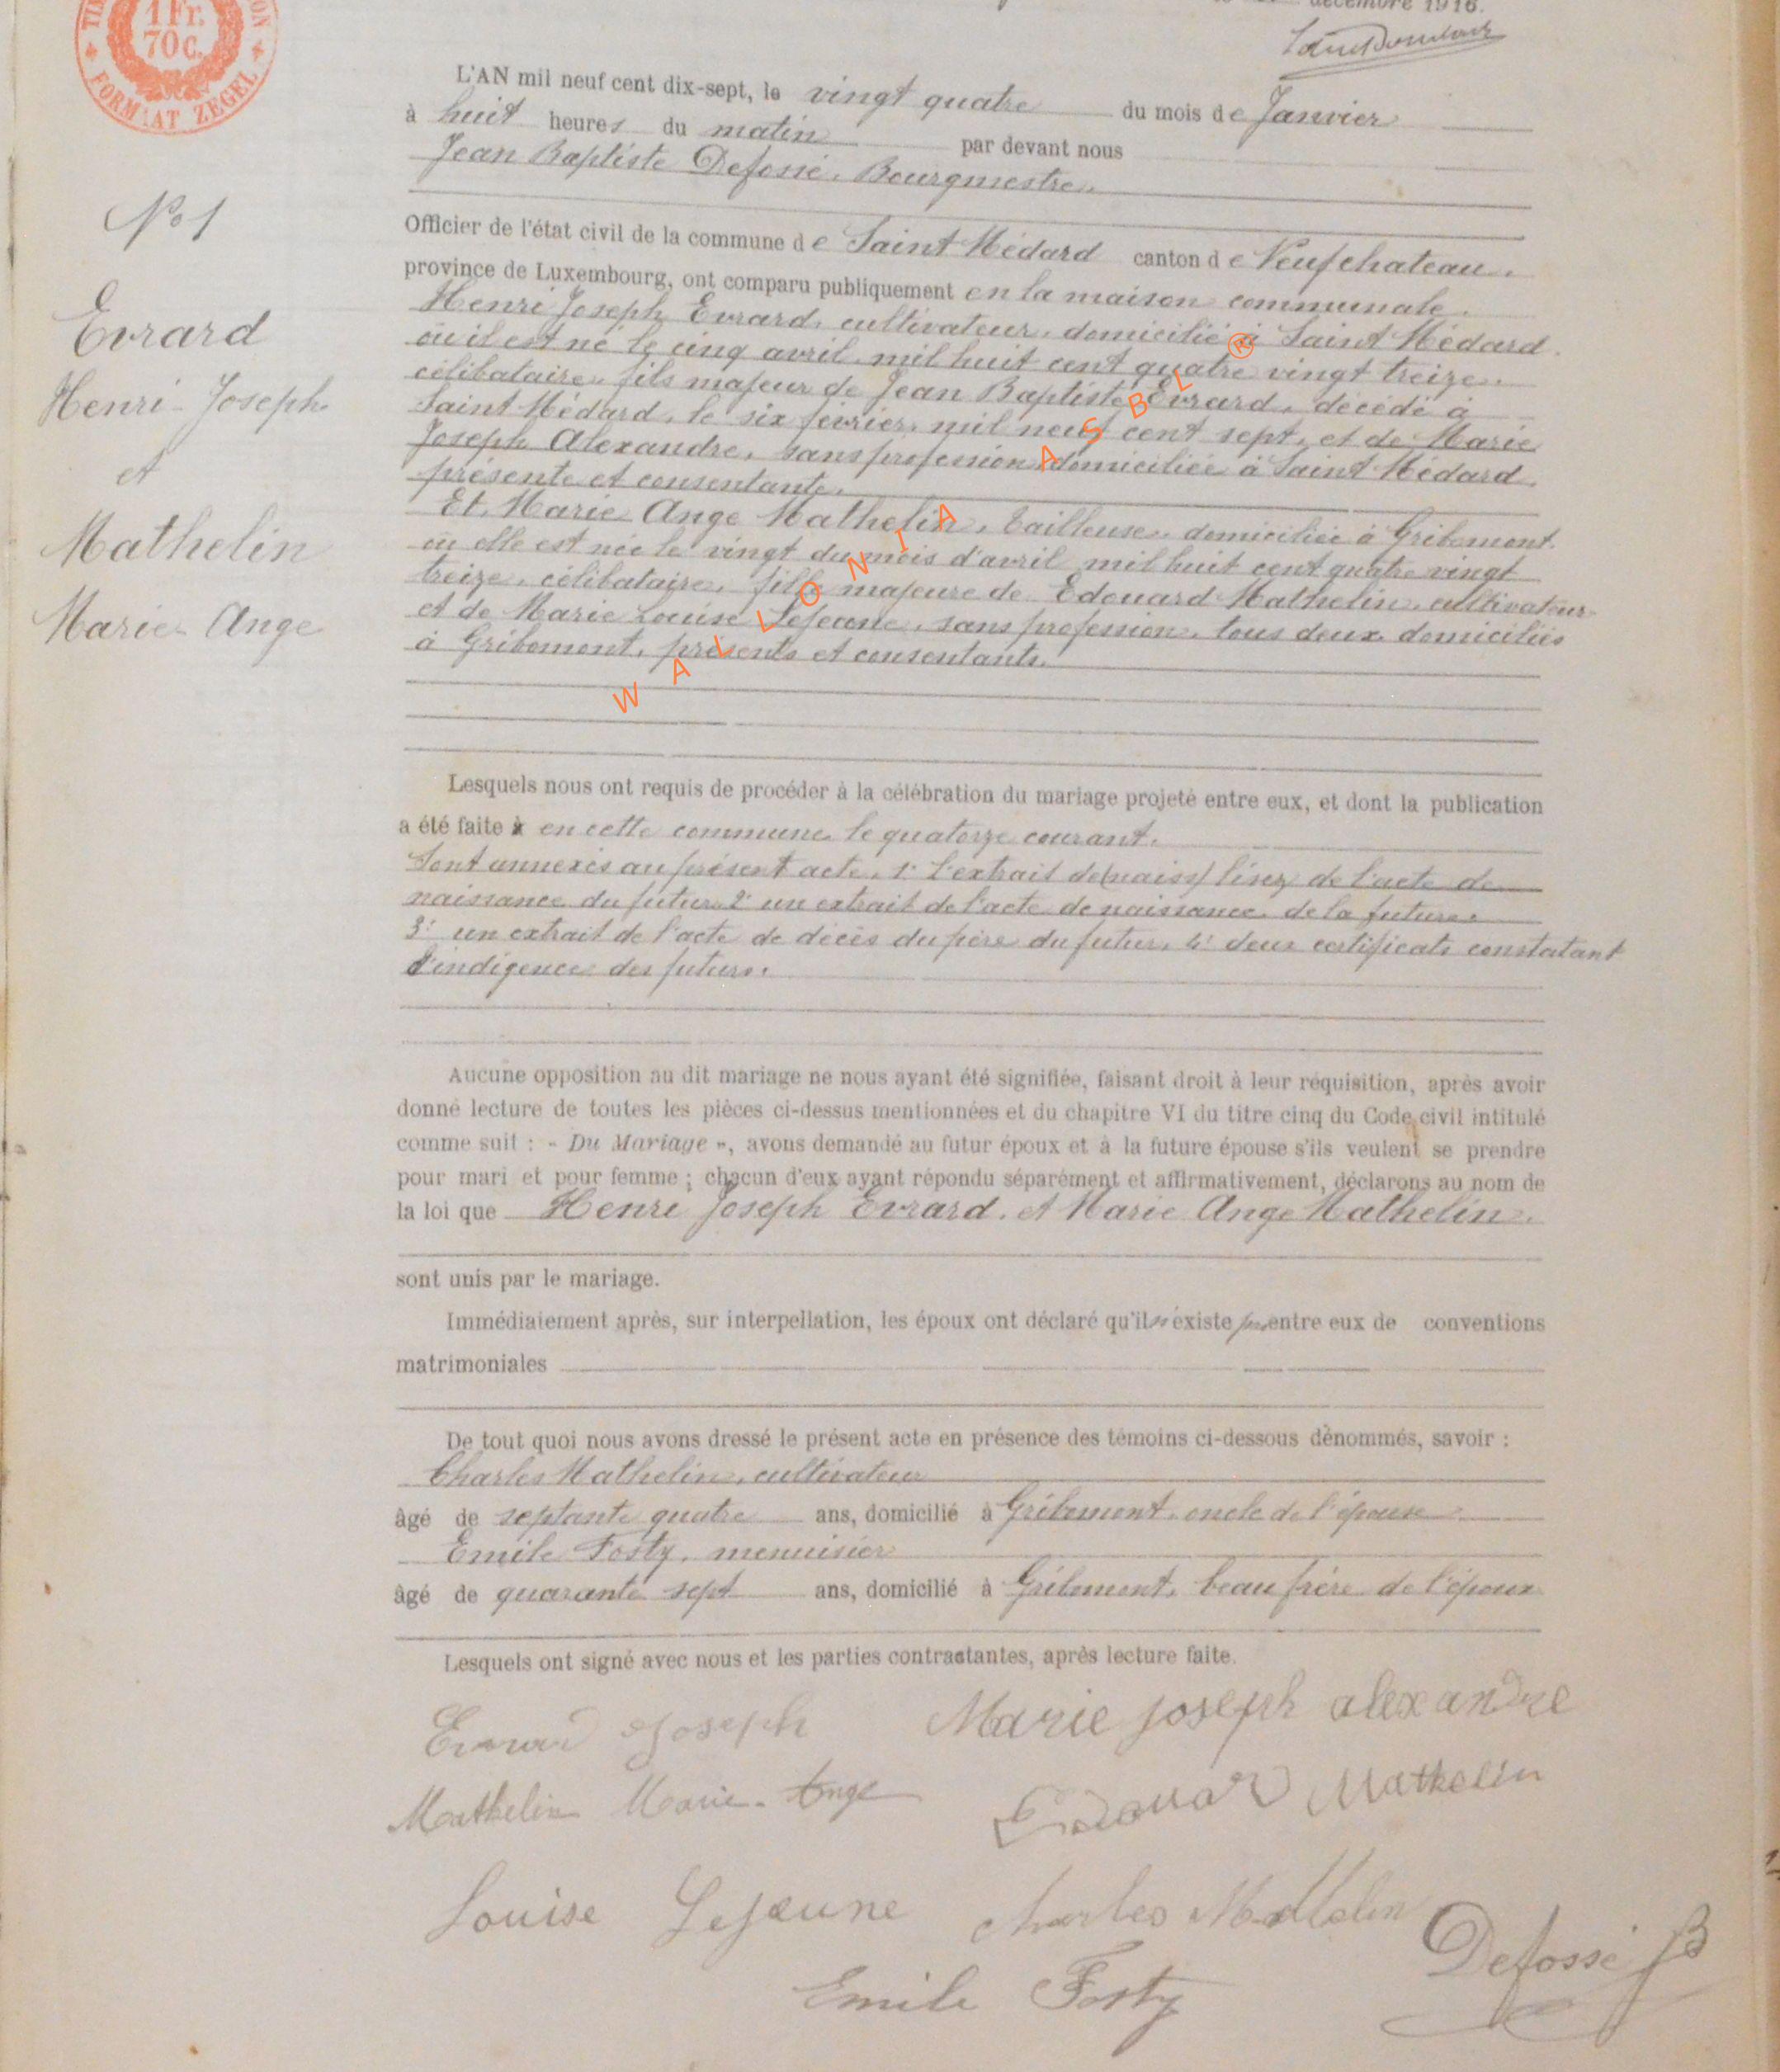 1 Fr.
70 c.
FORMAAT ZEGEL
décembre 1916.
L'AN mil neuf cent dix-sept, le vingt quatre du mois de Janvier
à huit heures du matin par devant nous
Jean Baptiste Defossé, Bourgmestre
N° 1
Officier de l'état civil de la commune de Saint Médard canton de Neufchateau,
province de Luxembourg, ont comparu publiquement en la maison communale.
Evrard
Henri-Joseph
et
Mathelin
Marie-Ange
Henri Joseph Evrard, cultivateur, domicilié à Saint Médard
où il est né le cinq avril mil huit cent quatre vingt treize,
célibataire, fils majeur de Jean Baptiste Evrard, décédé à
Saint Médard, le six février, mil neuf cent sept, et de Marie
Joseph Alexandre, sans profession domiciliée à Saint Médard,
présente et consentante.
Et, Marie Ange Mathelin, tailleuse, domiciliée à Gribomont
où elle est née le vingt du mois d'avril mil huit cent quatre vingt
treize, célibataire, fille majeure de Edouard Mathelin, cultivateur
et de Marie Louise Lejeune, sans profession, tous deux domiciliés
à Gribomont, présents et consentants.
WALLONIA ASBL ®
Lesquels nous ont requis de procéder à la célébration du mariage projeté entre eux, et dont la publication
a été faite à en cette commune le quatorze courant.
Sont annexés au présent acte, 1° l'extrait de (naiss) lisez de l'acte de
naissance du futur 2° un extrait de l'acte de naissance de la future
3° un extrait de l'acte de décès du père du futur, 4° deux certificats constatant
l'indigence des futurs.
Aucune opposition au dit mariage ne nous ayant été signifiée, faisant droit à leur réquisition, après avoir
donné lecture de toutes les pièces ci-dessus mentionnées et du chapitre VI du titre cinq du Code civil intitulé
comme suit : « Du Mariage », avons demandé au futur époux et à la future épouse s'ils veulent se prendre
pour mari et pour femme ; chacun d'eux ayant répondu séparément et affirmativement, déclarons au nom de
la loi que Henri Joseph Evrard, et Marie Ange Mathelin,
sont unis par le mariage.
Immédiatement après, sur interpellation, les époux ont déclaré qu'il n'existe pas entre eux de conventions
matrimoniales
De tout quoi nous avons dressé le présent acte en présence des témoins ci-dessous dénommés, savoir :
Charles Mathelin, cultivateur
âgé de septante quatre ans, domicilié à Gribomont, oncle de l'épouse
Emile Fosty, menuisier
âgé de quarante sept ans, domicilié à Gribomont, beau frère de l'époux
Lesquels ont signé avec nous et les parties contractantes, après lecture faite.
Evrard Joseph Marie joseph alexandre
Mathelin Marie-Ange Edouard Mathelin
Louise Lejeune Charles Mathelin
Defossé JB
Emile Fosty